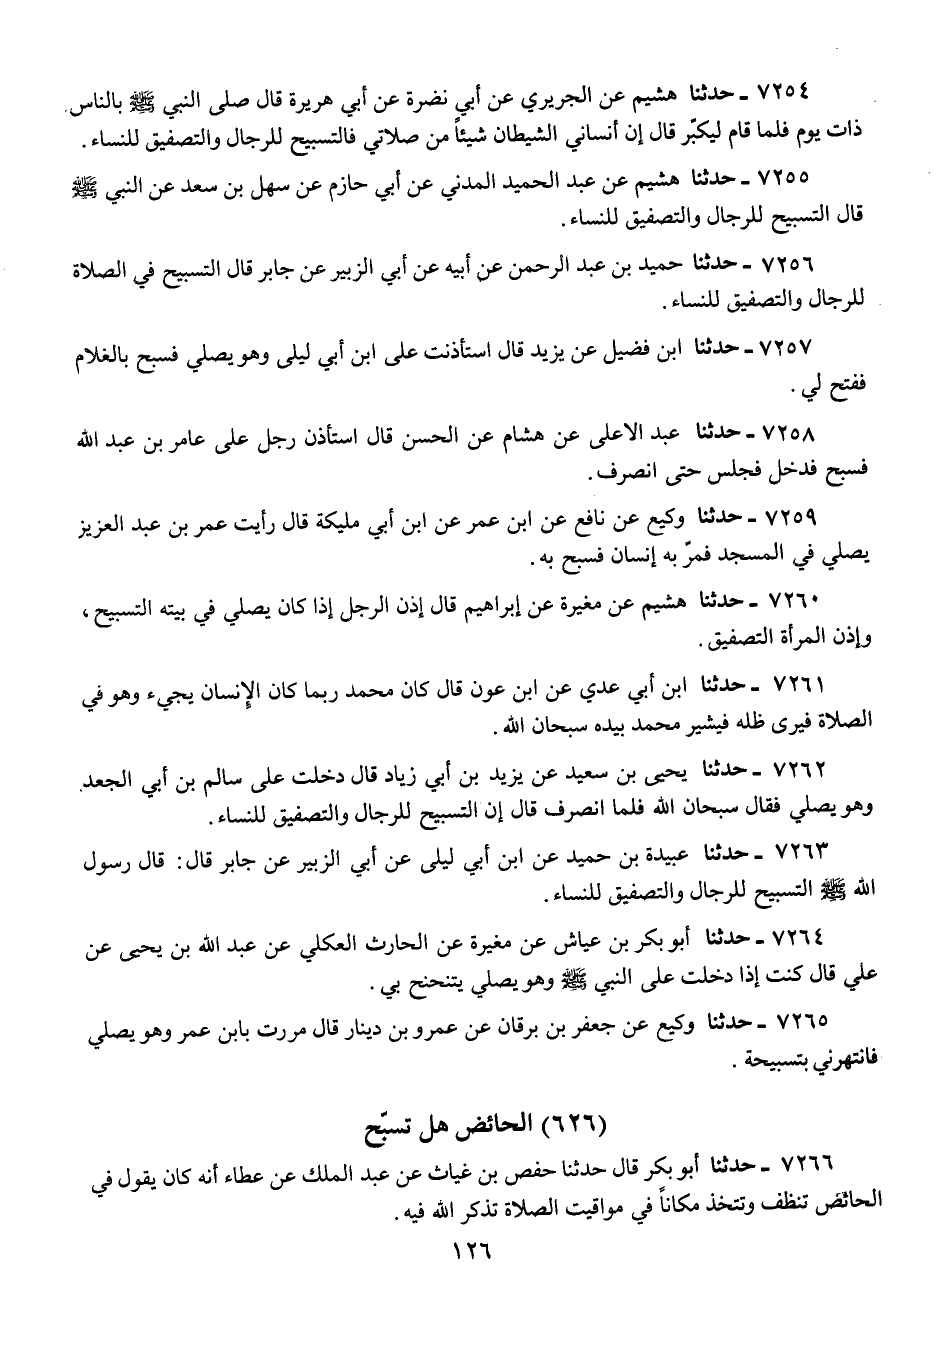 ٧٢٥٤ ـ حدثنا هشيم عن الجريري عن أبي نضرة عن أبي هريرة قال صلى النبي ﷺ بالناس
ذات يوم فلما قام ليكبّر قال إن أنساني الشيطان شيئاً من صلاتي فالتسبيح للرجال والتصفيق للنساء .
٧٢٥٥ ـ حدثنا هشيم عن عبد الحميد المدني عن أبي حازم عن سهل بن سعد عن النبي ﷺ
قال التسبيح للرجال والتصفيق للنساء .
٧٢٥٦ ـ حدثنا حميد بن عبد الرحمن عن أبيه عن أبي الزبير عن جابر قال التسبيح في الصلاة
للرجال والتصفيق للنساء .
٧٢٥٧ ـ حدثنا ابن فضيل عن يزيد قال استأذنت على ابن أبي ليلى وهو يصلي فسبح بالغلام
ففتح لي .
٧٢٥٨ ـ حدثنا عبد الاعلى عن هشام عن الحسن قال استأذن رجل على عامر بن عبد الله
فسبح فدخل فجلس حتى انصرف .
٧٢٥٩ ـ حدثنا وكيع عن نافع عن ابن عمر عن ابن أبي مليكة قال رأيت عمر بن عبد العزيز
يصلي في المسجد فمرّ به إنسان فسبح به .
٧٢٦٠ ـ حدثنا هشيم عن مغيرة عن إبراهيم قال إذن الرجل إذا كان يصلي في بيته التسبيح ،
وإذن المرأة التصفيق .
٧٢٦١ ـ حدثنا ابن أبي عدي عن ابن عون قال كان محمد ربما كان الإنسان يجيء وهو في
الصلاة فيرى ظله فيشير محمد بيده سبحان الله .
٧٢٦٢ ـ حدثنا يحيى بن سعيد عن يزيد بن أبي زياد قال دخلت على سالم بن أبي الجعد
وهو يصلي فقال سبحان الله فلما انصرف قال إن التسبيح للرجال والتصفيق للنساء .
٧٢٦٣ ـ حدثنا عبيدة بن حميد عن ابن أبي ليلى عن أبي الزبير عن جابر قال : قال رسول
الله ﷺ التسبيح للرجال والتصفيق للنساء .
٧٢٦٤ ـ حدثنا أبو بكر بن عياش عن مغيرة عن الحارث العكلي عن عبد الله بن يحيى عن
علي قال كنت إذا دخلت على النبي ﷺ وهو يصلي يتنحنح بي .
٧٢٦٥ ـ حدثنا وكيع عن جعفر بن برقان عن عمرو بن دينار قال مررت بابن عمر وهو يصلي
فانتهرني بتسبيحة .
(٦٢٦) الحائض هل تسبّح
٧٢٦٦ ـ حدثنا أبو بكر قال حدثنا حفص بن غياث عن عبد الملك عن عطاء أنه كان يقول في
الحائض تنظف وتتخذ مكاناً في مواقيت الصلاة تذكر الله فيه .
١٢٦